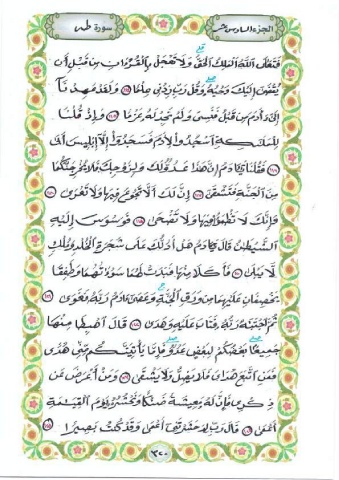 الجزء السادس عشر
سورة طه
فَتَعَٰلَى ٱللَّهُ ٱلْمَلِكُ ٱلْحَقُّ وَلَا تَعْجَلْ بِٱلْقُرْءَانِ مِن قَبْلِ أَن
يُقْضَىٰٓ إِلَيْكَ وَحْيُهُۥ وَقُل رَّبِّ زِدْنِى عِلْمًا ١١٤ وَلَقَدْ عَهِدْنَآ
إِلَىٰٓ ءَادَمَ مِن قَبْلُ فَنَسِىَ وَلَمْ نَجِدْ لَهُۥ عَزْمًا ١١٥ وَإِذْ قُلْنَا
لِلْمَلَٰٓئِكَةِ ٱسْجُدُوا۟ لِءَادَمَ فَسَجَدُوٓا۟ إِلَّآ إِبْلِيسَ أَبَىٰ
١١٦ فَقُلْنَا يَٰٓـَٔادَمُ إِنَّ هَٰذَا عَدُوٌّ لَّكَ وَلِزَوْجِكَ فَلَا يُخْرِجَنَّكُمَا
مِنَ ٱلْجَنَّةِ فَتَشْقَىٰٓ ١١٧ إِنَّ لَكَ أَلَّا تَجُوعَ فِيهَا وَلَا تَعْرَىٰ ١١٨
وَأَنَّكَ لَا تَظْمَؤُا۟ فِيهَا وَلَا تَضْحَىٰ ١١٩ فَوَسْوَسَ إِلَيْهِ
ٱلشَّيْطَٰنُ قَالَ يَٰٓـَٔادَمُ هَلْ أَدُلُّكَ عَلَىٰ شَجَرَةِ ٱلْخُلْدِ وَمُلْكٍ
لَّا يَبْلَىٰ ١٢٠ فَأَكَلَا مِنْهَا فَبَدَتْ لَهُمَا سَوْءَٰتُهُمَا وَطَفِقَا
يَخْصِفَانِ عَلَيْهِمَا مِن وَرَقِ ٱلْجَنَّةِ وَعَصَىٰٓ ءَادَمُ رَبَّهُۥ فَغَوَىٰ ١٢١
ثُمَّ ٱجْتَبَٰهُ رَبُّهُۥ فَتَابَ عَلَيْهِ وَهَدَىٰ ١٢٢ قَالَ ٱهْبِطَا مِنْهَا
جَمِيعًۢا بَعْضُكُمْ لِبَعْضٍ عَدُوٌّ فَإِمَّا يَأْتِيَنَّكُم مِّنِّى هُدًى
فَمَنِ ٱتَّبَعَ هُدَاىَ فَلَا يَضِلُّ وَلَا يَشْقَىٰ ١٢٣ وَمَنْ أَعْرَضَ عَن
ذِكْرِى فَإِنَّ لَهُۥ مَعِيشَةً ضَنكًا وَنَحْشُرُهُۥ يَوْمَ ٱلْقِيَٰمَةِ
أَعْمَىٰ ١٢٤ قَالَ رَبِّ لِمَ حَشَرْتَنِىٓ أَعْمَىٰ وَقَدْ كُنتُ بَصِيرًا ١٢٥
٣٢٠